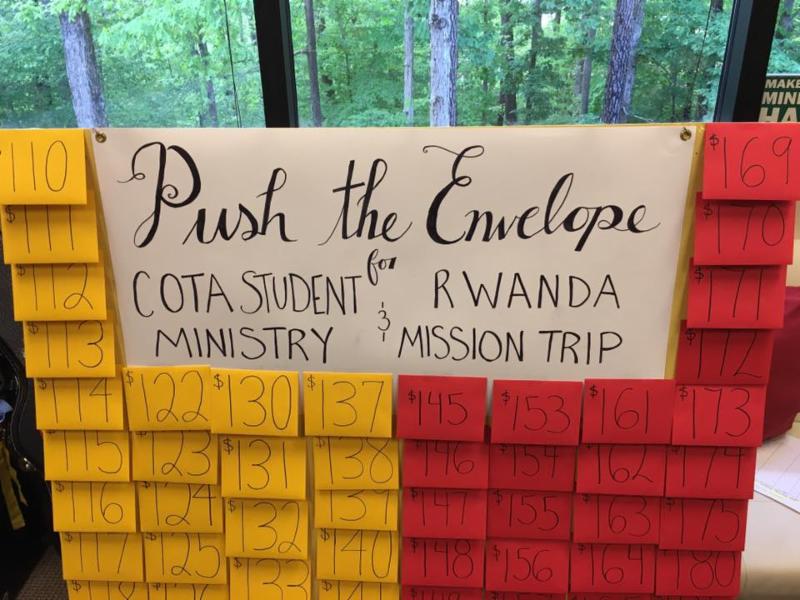 MAKE
MIN
HA
Push the Envelope
for
COTA STUDENT & RWANDA
MINISTRY MISSION TRIP
$110 $169
$111 $170
$112 $171
$113 $172
$114 $122 $130 $137 $145 $153 $161 $173
$115 $123 $131 $138 $146 $154 $162 $174
$116 $124 $132 $139 $147 $155 $163 $175
$117 $125 $133 $140 $148 $156 $164 $180